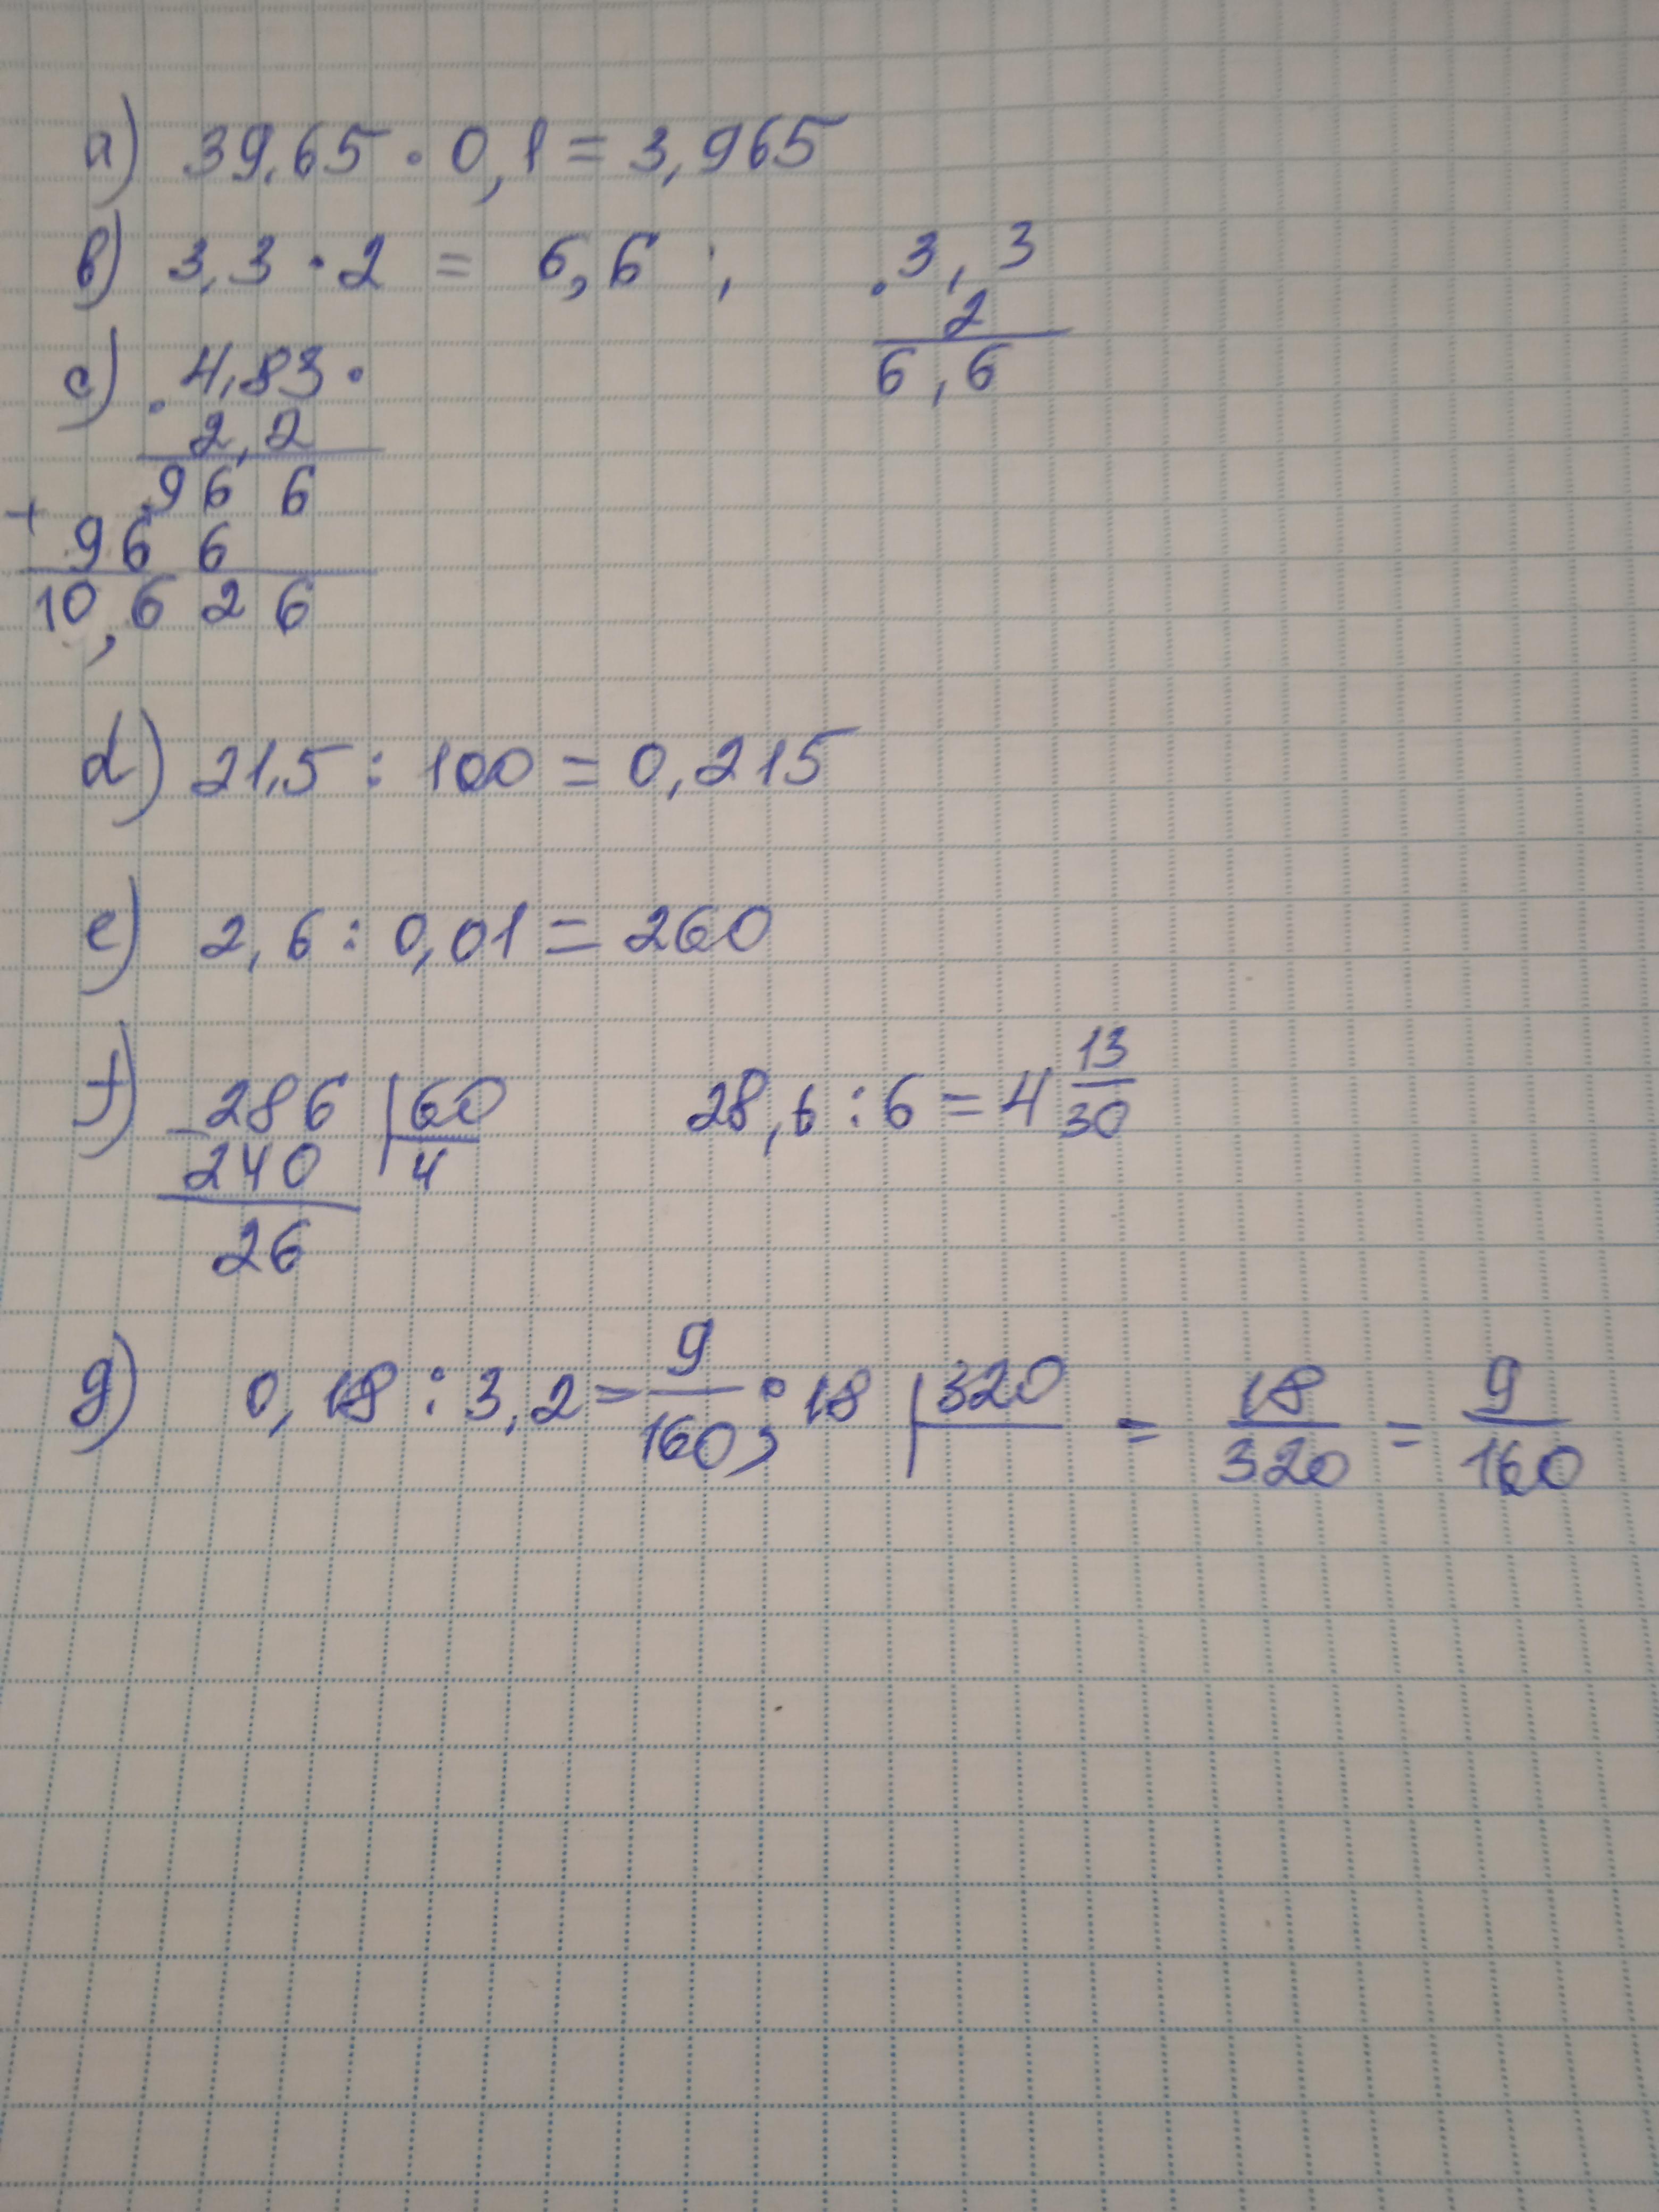 a) 39,65 · 0,1 = 3,965
b) 3,3 · 2 = 6,6 ; · 3,3
2
6,6
c) · 4,83 ·
2,2
966
+ 966
10,626
d) 21,5 : 100 = 0,215
e) 2,6 : 0,01 = 260
f) - 286 | 60 28,6 : 6 = 4 13/30
240 4
26
g) 0,18 : 3,2 = 9/160 ; 18 | 320 = 18/320 = 9/160